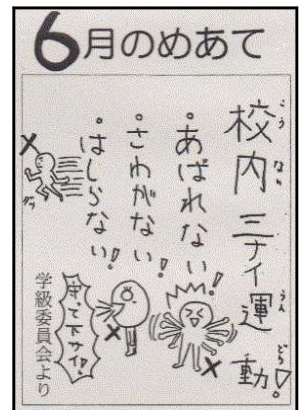 6月のめあて
校内三ナイ運動!
こうないうんどう
・あばれない!
・さわがない!
・はしらない!
守って下サイ!
学級委員会より